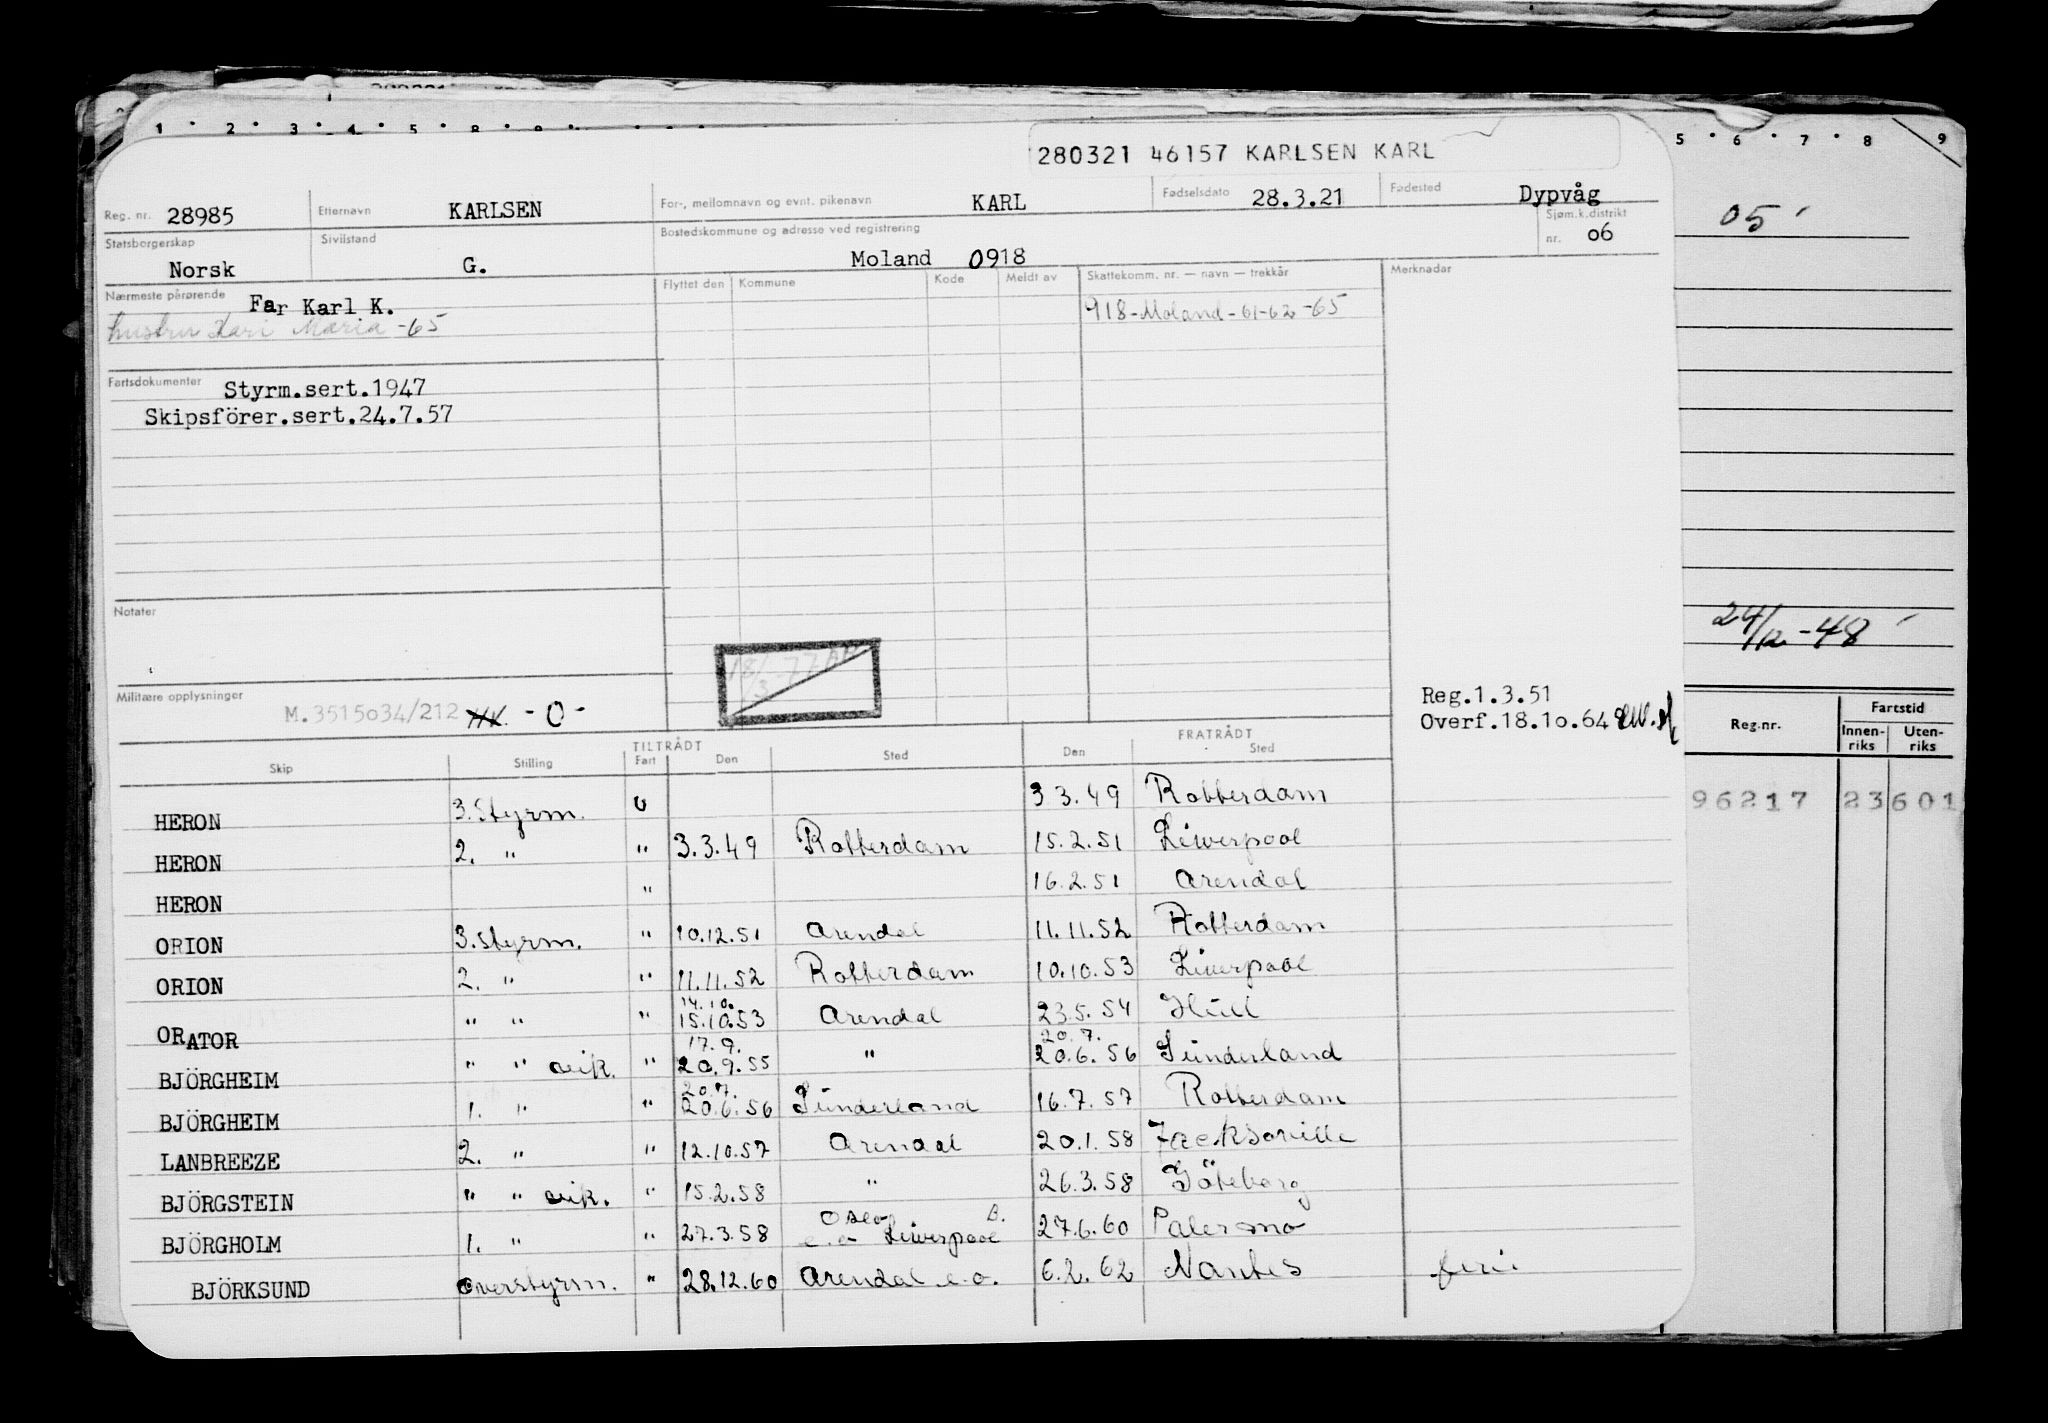 1 · 2 · 3 · 4 · 5 8 9
5 · 6 · 7 · 8 9
280321 46157 KARLSEN KARL
Reg. nr. 28985 Etternavn KARLSEN For-, mellomnavn og evnt. pikenavn KARL Fødselsdato 28.3.21 Fødested Dypvåg
Statsborgerskap Norsk Sivilstand G. Bostedskommune og adresse ved registrering Moland 0918 Sjøm.k.distrikt nr. 06
05
Nærmeste pårørende Far Karl K. Flyttet den Kommune Kode Meldt av Skattekomm. nr. — navn — trekkår Merknader
hustru Kari Maria -65 918-Moland-61-62-65
Fartsdokumenter Styrm.sert.1947
Skipsförer.sert.24.7.57
Notater
24/12-48
18/3-77
Militære opplysninger M.3515034/212 - 0 -
Reg.1.3.51
Overf.18.10.64
Reg.nr. Fartstid
Innen-riks Uten-riks
96217 23 601
TILTRÅDT FRATRÅDT
Skip Stilling Fart Den Sted Den Sted
HERON 3.Styrm. U 3.3.49 Rotterdam
HERON 2. " " 3.3.49 Rotterdam 15.2.51 Liverpool
HERON " 16.2.51 Arendal
ORION 3.Styrm. " 10.12.51 Arendal 11.11.52 Rotterdam
ORION 2. " " 11.11.52 Rotterdam 10.10.53 Liverpool
14.10.
ORATOR " " " 15.10.53 Arendal 23.5.54 Hull
17.9. 20.7.
BJÖRGHEIM " " vik. " 20.9.55 " 20.6.56 Sunderland
20.7.
BJÖRGHEIM 1. " " 20.6.56 Sunderland 16.7.57 Rotterdam
LANBREEZE 2. " " 12.10.57 Arendal 20.1.58 Jacksoville
BJÖRGSTEIN " " vik. " 15.2.58 " 26.3.58 Göteborg
Oslo B.
BJÖRGHOLM 1. " " 27.3.58 e.o Liverpool 27.6.60 Palermo
BJÖRKSUND overstyrm. " 28.12.60 Arendal e.o. 6.2.62 Nantes ferie